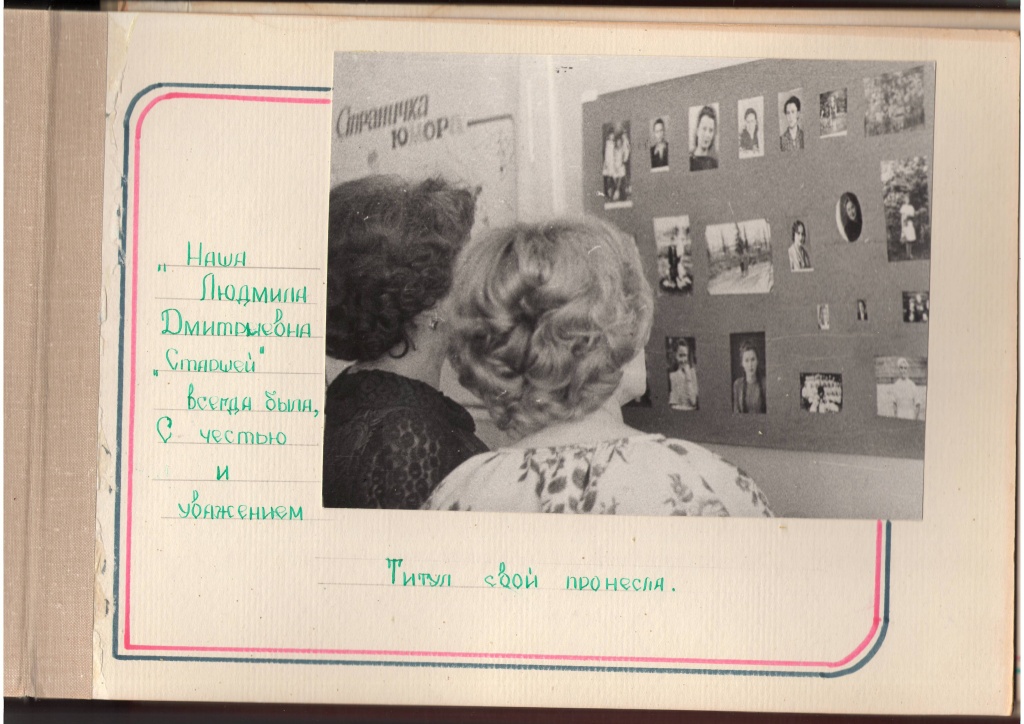 Страничка
юмора
„ Наша
Людмила
Дмитриевна
„Старшей"
всегда была,
С честью
и
уважением
Титул свой пронесла.